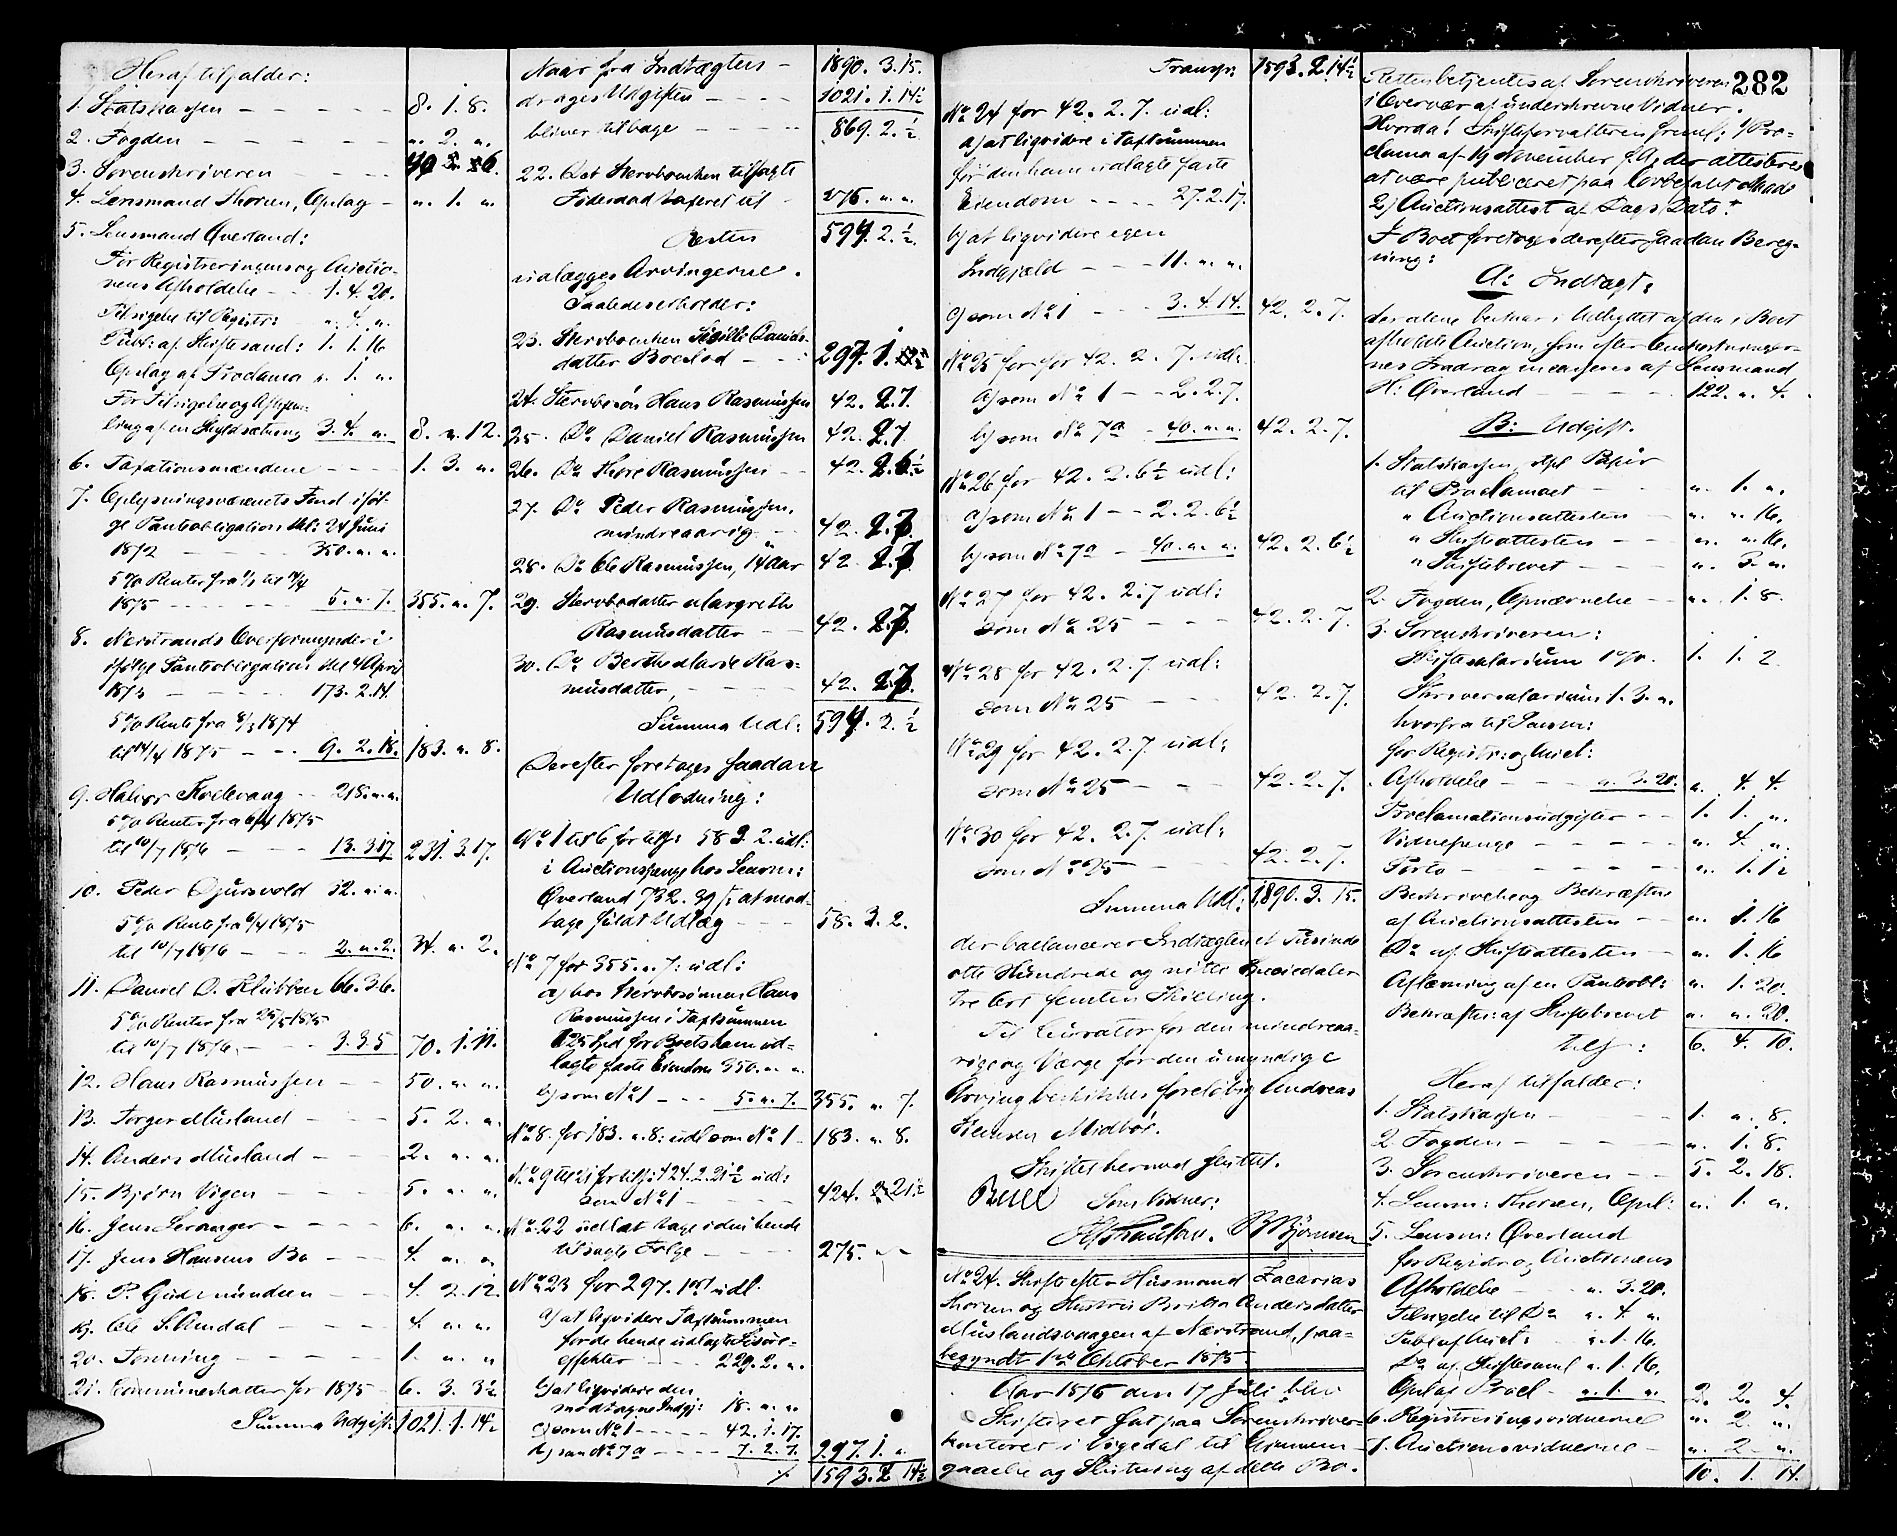 Heraf tilfalder:
1. Statskassen - - - - - 8. 1. 8.
2. Fogden - - - - - - „. 2. „.
3. Sorenskriveren - - - -
4. Lensmand Thoren, Opslag - „. 1. „.
5. Lensmand Øverland:
For Registreringens og Auctio-
nens Afholdelse - - 1. 4. 20.
Tilsigelse til Registr: „. 4. „.
Publ: af Skiftesaml: 1. 1. 16
Opslag af Proclama „. 1. „.
For Tilsigelse og Afhjem-
ling af en Skyldsætning 3. 4. „. 8. „. 12.
6. Taxationsmændene - - - - 1. 3. „.
7. Oplysningsvæsenets Fond iføl-
ge Pantobligation dat: 24 Juni
1872 - - - - 350. „. „.
5% Renter fra 1/1 til 14/4
1875 - - - - - 5. „. 7. 355. „. 7.
8. Nerstrands Overformynderi
ifølge Pantobligation dat 4 April
1873 - - - - 173. 2. 14.
5% Rente fra 8/3 1874
til 14/4 1875 - - - 9. 2. 18. 183. „. 8.
9. Halvor Hvelevaag - - 218. „. „.
5% Renter fra 6/4 1875
til 10/7 1876 - - - 13. 3 17 231. 3. 17.
10. Peder Djursvold 32. „. „.
5% Rente fra 6/4 1875
til 10/7 1876 - - - 2. „. 2. 34. „. 2.
11. Daniel D. Klubben 66. 3. 6.
5% Renter fra 25/5 1875
til 10/7 1876. - - - 3. 3. 5 70. 1. 11.
12. Hans Rasmussen - - 50. „. „.
13. Torger Musland - - - 5. 2. „.
14. Anders Musland - - - 2. „. „.
15. Bjørn Vigen - - - - 5. „. „.
16. Jens Leranger - - - - 6. „. „.
17. Jens Hansens Bo - - - 4. „. „.
18. P. Gudmundsen - - - 4. 2. 12.
19. Ole S. Aendal - - - - 4. „. „.
20. Tonning - - - - - 1. „. „
21. Communeskatter for 1875 - 6. 3. 3½
Summa Udgift: 1021. 1. 14½
Naar fra Indtægten - 1890. 3. 15.
drages Udgiften - - - - 1021. 1. 14½
bliver tilbage - - - - - 869. 2. ½
22. Det Stervboenken tilsagte
Føderaad taxeret til - 275. „. „.
Resten 594. 2. ½.
udlægges Arvingerne.
Saaledes erholder:
23. Stervboenken Daniels-
datter Boeslod - - - 297. 1.
24. Stervbosøn Hans Rasmussen 42. 2. 7.
25. Do Daniel Rasmussen 42. 2. 7
26. Do Thore Rasmussen - - 42. 2. 6½
27. Do Peder Rasmussen,
mindreaarig - - 42. 2. 7.
28. Do Ole Rasmussen, 14 Aar 42. 2. 7.
29. Stervbodatter Margrethe
Rasmusdatter - - - 42. 2. 7.
30. Do Berthe Marie Ras-
musdatter, - - - - 42. 2. 7.
Summa Udl: 594. 2. ½
Derefter foretages saadan
Udlodning:
No 1 til 6 for tils: 58 3. 2. udl:
i Auctionspenge hos Lensm:
Øverland 732. 39 at mod-
tage fuldt Udlæg - - - 58. 3. 2.
No 7 for 355. „. 7: udl:
a) hos Stervbosønnen Hans
Rasmussen i Taxtsummen
625 Spd for Boets ham ud-
lagte faste Eiendom 350. „. „.
b) som No 1 - - - 5. „. 7. 355. „. 7.
No 8. for 183. „. 8: udl som No 1 - 183. „. 8.
No 9 til 21 for tils: 424. 2. 21½ udl:
som No 1 - - - 424. 2. 21½
No 22 udl at tage i den hende
tilsagte Følge - - - - 275. „ „
No 23 for 297. 1 „ udl.
a) at liqvidere Taxtsummen
for de hende udlagte Løsøre-
effekter - - - - 229. 2. „.
b) at liqvidere den
modtagne Indgj: 18. „. „
c) som No 1 - - - - 42. 1. 17.
d) som No 7a - - - - 7. 2. 7. 297. 1. „.
1593. 2 14½
Transp: 1593. 2. 14½
No 24 for 42. 2. 7. udl:
a) at liqvidere i Taxtsummen
for den ham udlagte faste
Eiendom - - - - 27. 2. 17.
b) at liqvidere egen
Indgjæld - - - 11. „. „.
c) som No 1 - - - 3. 4. 14. 42. 2. 7.
No 25 for for 42. 2. 7. udl:
a) som No 1 - - 2. 2. 7.
b) som No 7a - 40. „. „. 42. 2. 7.
No 26 for 42. 2. 6½ udl:
a) som No 1 - - 2. 2. 6½
b) som No 7a - 40. „. „. 42. 2. 6½
No 27 for 42. 2. 7 udl:
som No 25 - - - 42. 2. 7.
No 28 for 42. 2. 7. udl:
som No 25 - - - 42. 2. 7.
No 29 for 42. 2. 7 udl:
som No 25 - - - 42. 2. 7.
No 30 for 42. 2. 7. udl:
som No 25 - - - - 42. 2. 7.
Summa Udl: 1890. 3. 15.
der ballancerer Indtægten et Tusinde
otte Hundrede og nitti Speciedaler
tre Ort femten Skilling.
Til Curator for den mindreaa-
rige og Værge for den umyndige
Arving beskikkes foreløbig Andreas
Midbøe.
Skiftet hermed sluttet.
Som Vidner:
B Bjørnsen
No 24. Skifte efter Husmand Zacarias
Thoresen og Hustru Britha Andersdatter
Muslandsvaagen af Nerstrand, paa-
begyndt 1ste Oktober 1875.
Aar 1876 den 17 Juli blev
Skifteret sat paa Sorenskriver-
kontoret i Vigedal til Gjennem-
gaaelse og Slutning af dette Bo.
282
Retten betjentes af Sorenskriveren
i Overvær af underskrevne Vidner.
Hvorda! Skifteforvalteren freml: 1) Pro-
clama af 19 November f. A., der attesteres
at være publiceret paa lovbefalet Maade
2) Auctionsattest af Dags Dato.
I Boet foretoges derefter saadan Bereg-
ning:
A: Indtægt:
der alene bestaar i Udbyttet af den i Boet
afholdte Auction, som efter Omkostninger-
nes Fradrag incasseres af Lensmand
H: Øverland - - - - - 122. „. 4.
B: Udgift.
1. Statskassen, stpl Papir
til Proclamaet - - - „. 1. „.
„ Auctionsattesten - - „. „. 16.
„ Skifteattesten - - „. „. 16.
„ Skiftebrevet - - - „. 3. „.
2. Fogden, Opnævnelse - - „. 1. 8.
3. Sorenskriveren:
Skiftesalarium 1%. 1. 1. 2.
Skriversalarium 1. 3. „.
hvorfra til Lensm:
for Registr: og Auct:
Afholdelse - - - „. 3. 20. „. 4. 4.
Proclamationsudgifter - - 1. 1. „.
Vidnepenge - - - - - „. 4. „.
Porto - - - - - „. 1. 12
Beskrivelse og Bekræftelse
af Auctionsattesten - - „. 1. 16
Do af Skifteattesten - - „. 1. 16
Aflæsning af en Pantobl: „. 1. 20.
Bekræftelse af Skiftebrevet „. „. 20.
tils: 6. 4. 10.
Heraf tilfalder:
1. Statskassen - - - - 1. „. 8.
2. Fogden - - - - - „. 1. 8.
3. Sorenskriveren - - 5. 2. 18.
4. Lensm: Thoren, Opsl: „. 1. „.
5. Lensm: Øverland
for Registr: og Auctionens
Afholdelse - - „. 3. 20.
Tilsigelse til Do „. 4. „.
Publ af Auct: „. 1. 16.
Do af Skiftesaml „. 1. 16.
Opslag Procl - „. 1. „. 2. 2. 4.
6. Registreringsvidnerne „. 2. „.
7. Auctionsvidnerne - „. 2. „.
10. 1. 14.